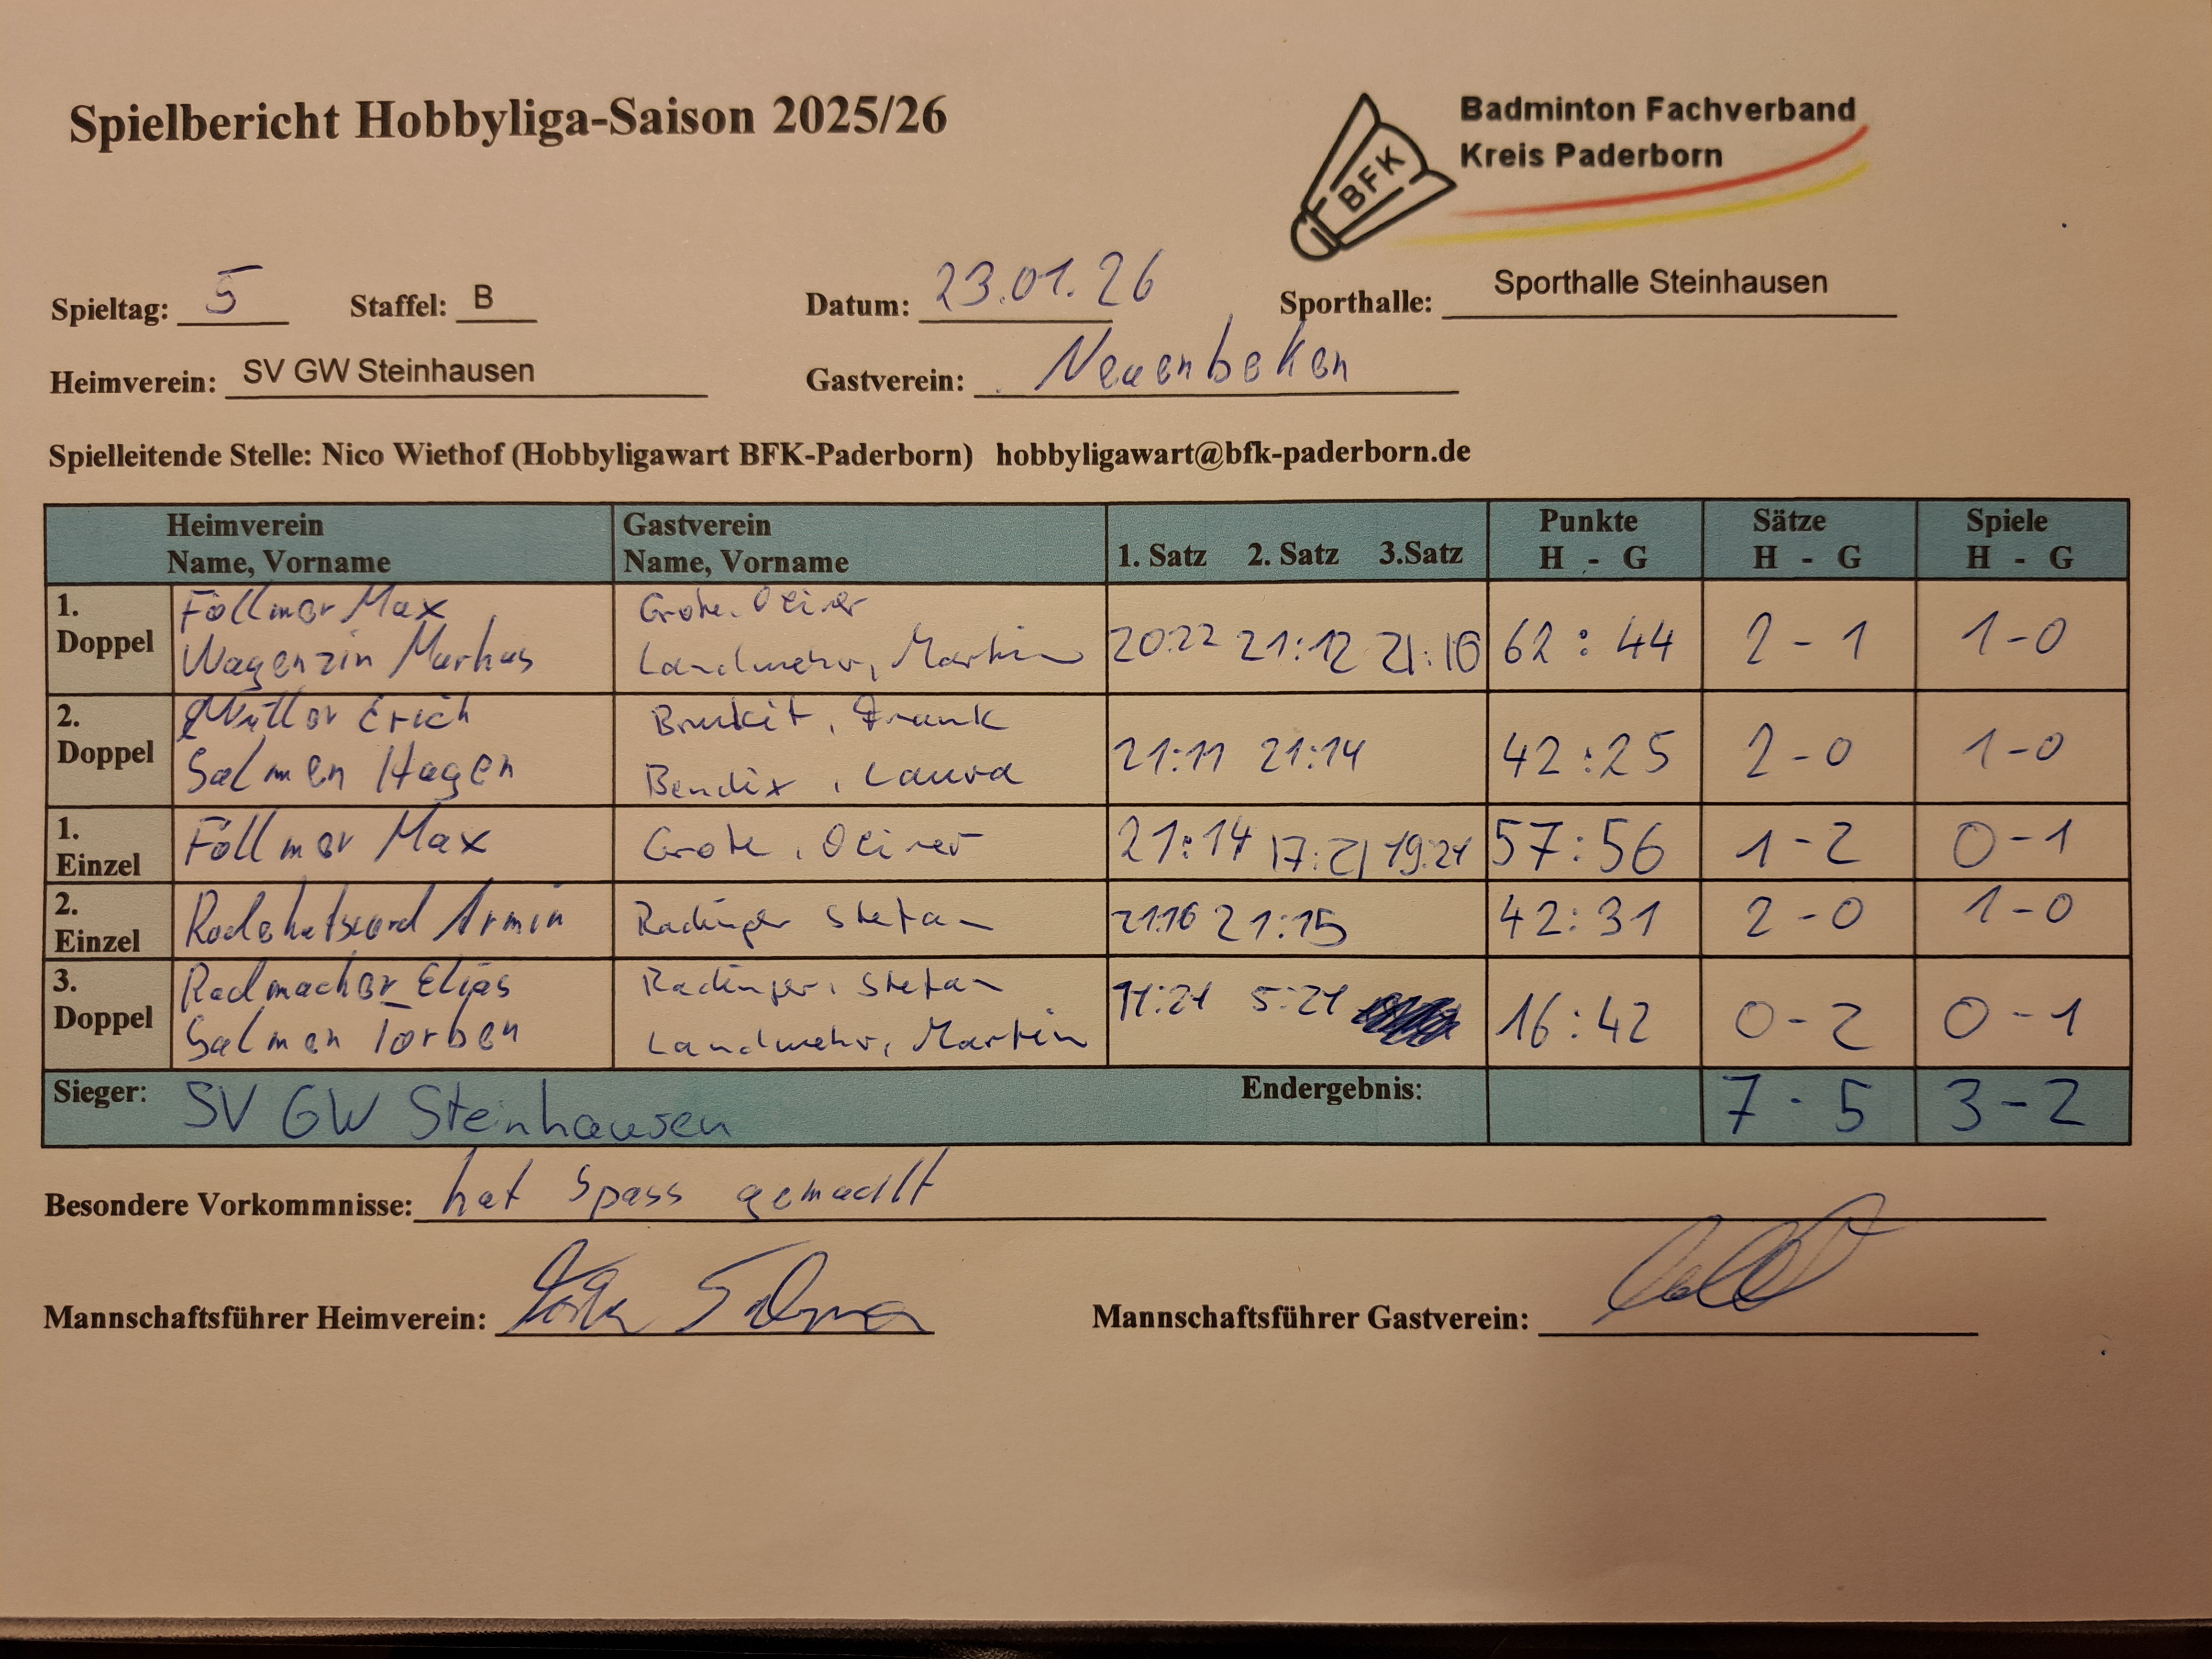 Spielbericht Hobbyliga-Saison 2025/26
BFK
Badminton Fachverband
Kreis Paderborn
Spieltag: 5 Staffel: B Datum: 23.01.26 Sporthalle: Sporthalle Steinhausen
Heimverein: SV GW Steinhausen Gastverein: Neuenbeken
Spielleitende Stelle: Nico Wiethof (Hobbyligawart BFK-Paderborn) hobbyligawart@bfk-paderborn.de
Heimverein Gastverein Punkte Sätze Spiele
Name, Vorname Name, Vorname 1. Satz 2. Satz 3.Satz H - G H - G H - G
1. Föllmer Max Grote, Oliver
Doppel Markus Landwehr, Martin 20:22 21:12 21:10 62:44 2-1 1-0
2. Erich Frank
Doppel Salmen Hagen Bendix, Laura 21:11 21:14 42:25 2-0 1-0
1. Einzel Föllmer Max Grote, Oliver 21:14 17:21 19:21 57:56 1-2 0-1
2. Einzel Armin Radinger Stefan 21:16 21:15 42:31 2-0 1-0
3. Radmacher Elias Radinger, Stefan
Doppel Salmen Torben Landwehr, Martin 11:21 5:21 16:42 0-2 0-1
Sieger: SV GW Steinhausen Endergebnis: 7-5 3-2
Besondere Vorkommnisse: hat Spass gemacht
Mannschaftsführer Heimverein: Mannschaftsführer Gastverein: